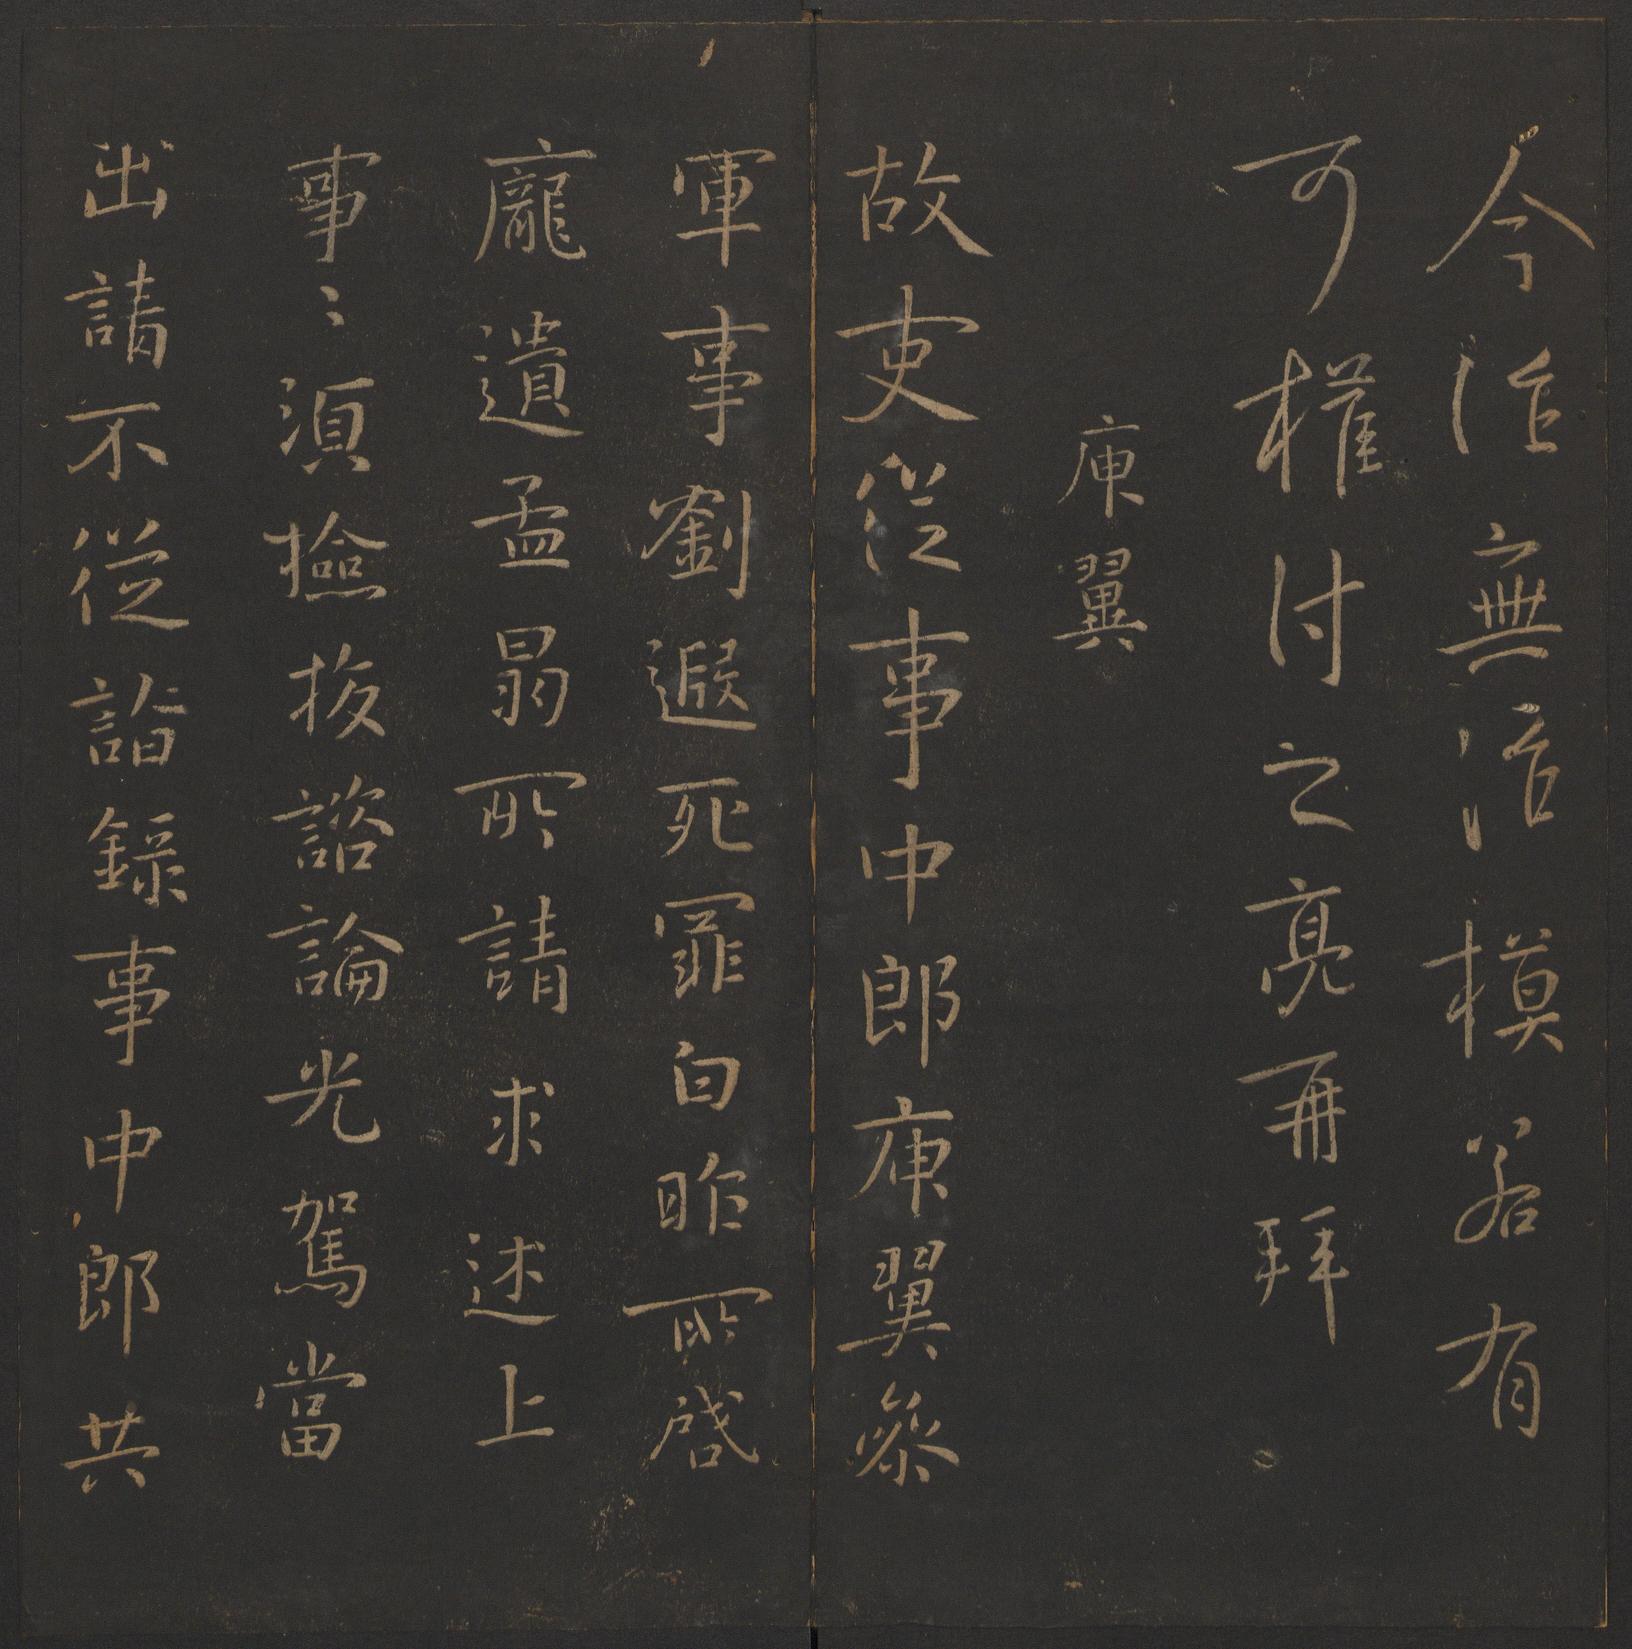 今治無治模若有
可權付之亮再拜
庾翼
故吏從事中郎庾翼參
軍事劉遐死罪白昨所啓
龐遺孟晷所請求述上
事〻須撿按諮論光駕當
出請不從詣錄事中郎共